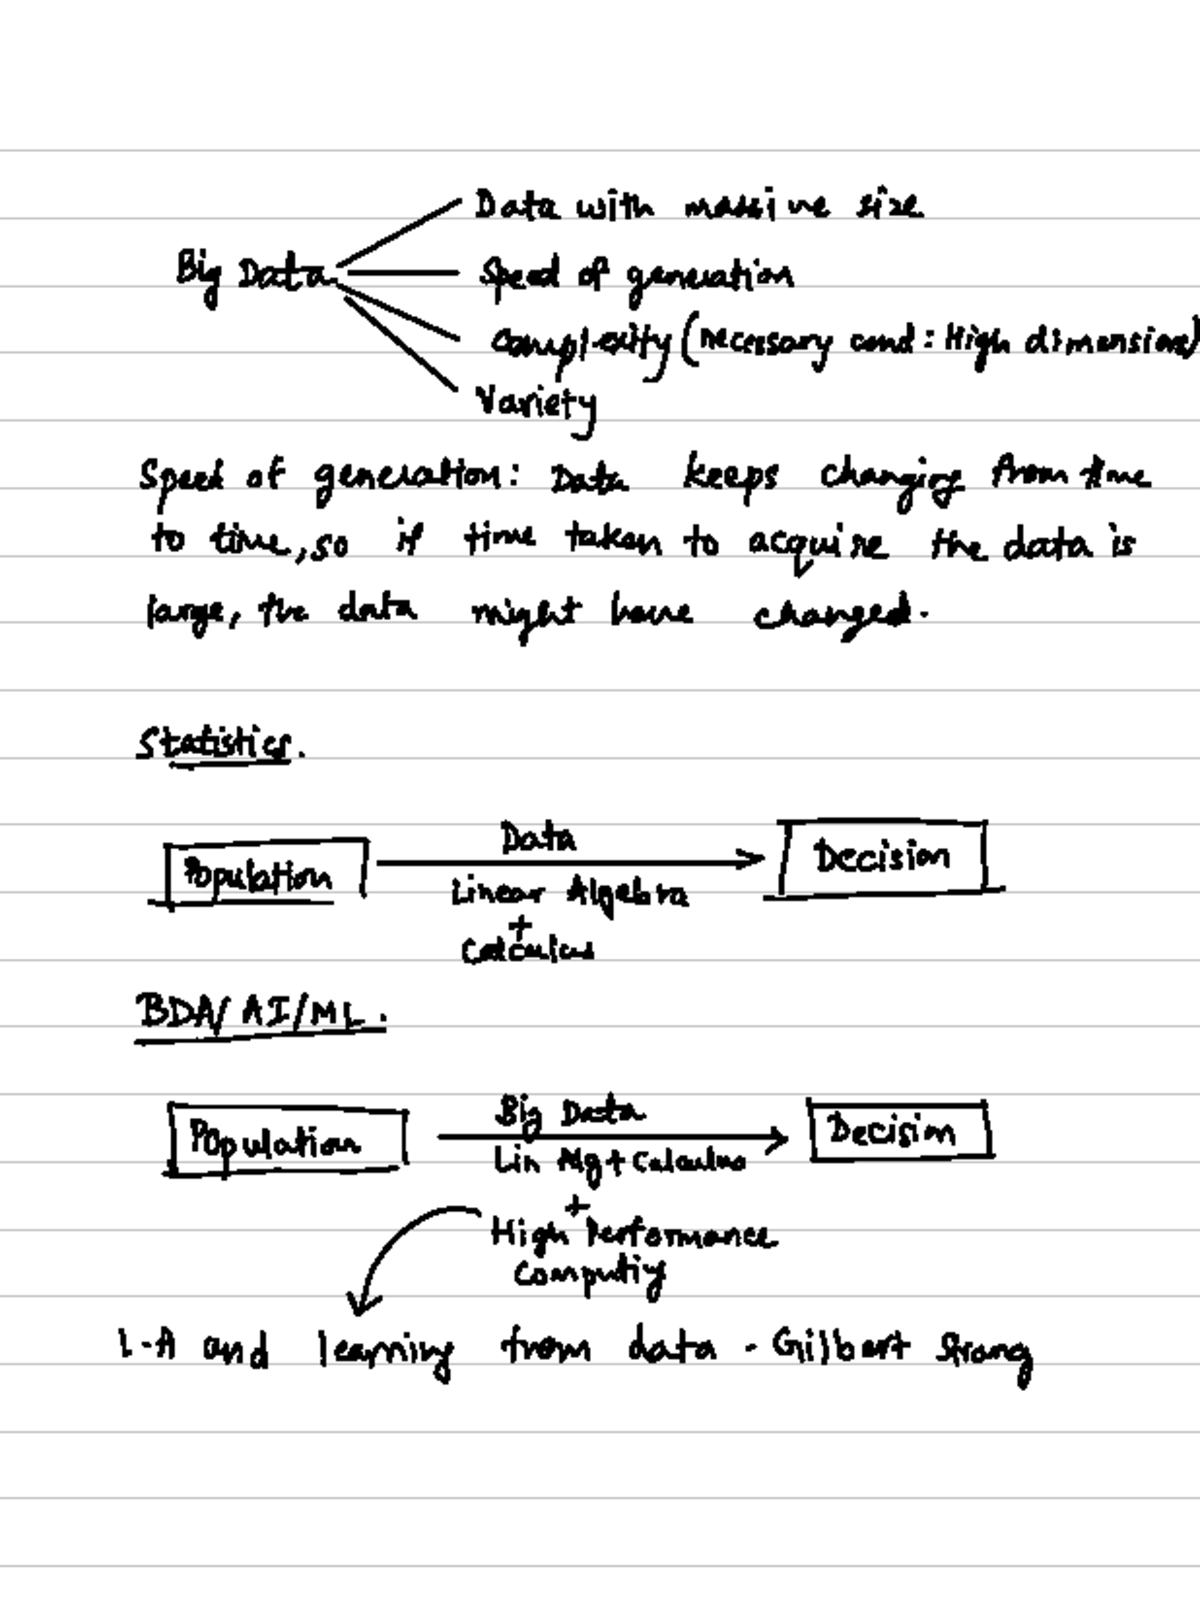 Data with massive size
Big Data
Speed of generation
Complexity (necessary cond: High dimensions)
Variety
Speed of generation: Data keeps changing from time
to time, so if time taken to acquire the data is
large, the data might have changed.
Statistics.
Population
Data
Decision
Linear Algebra
+
Calculus
BDA/AI/ML.
Population
Big Data
Decision
Lin Alg + Calculus
+
High Performance
Computing
L-A and learning from data - Gilbert Strang